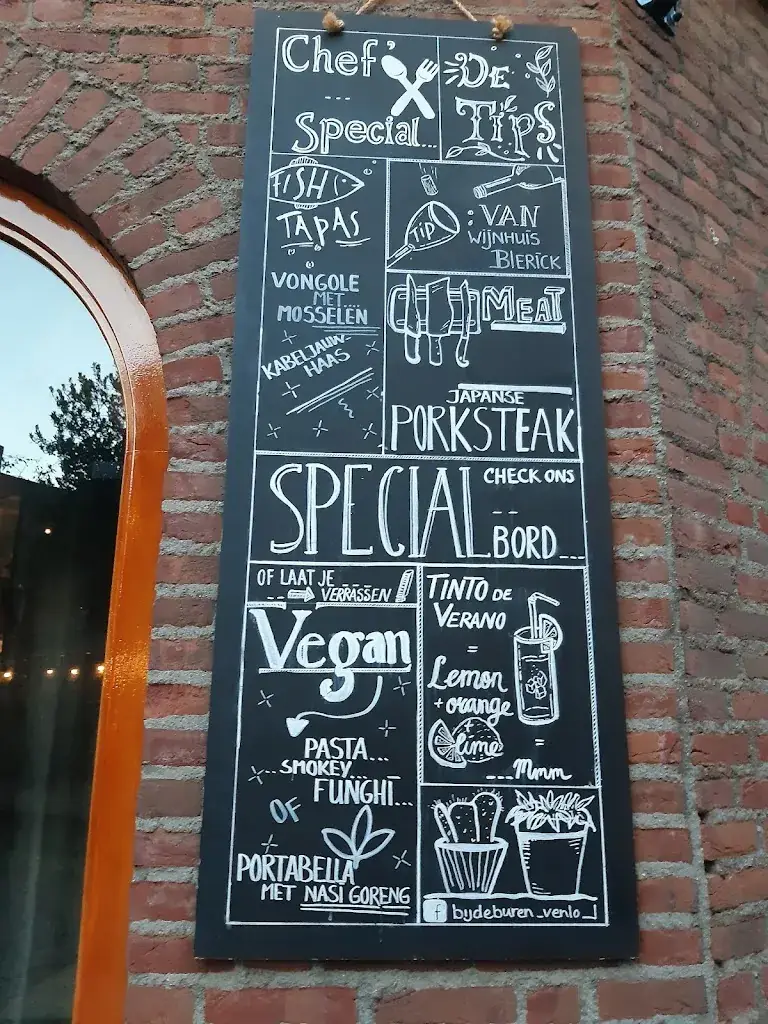 Chef's
Special...
De
Tips
FISH
TAPAS
VONGOLE
MET....
MOSSELEN
KABELJAUW-
HAAS
TIP
: VAN
WIJNHUIS
BLERICK
MEAT
JAPANSE
PORKSTEAK
SPECIAL
CHECK ONS
BORD
OF LAAT JE
VERRASSEN
Vegan
PASTA...
SMOKEY...
FUNGHI...
OF
PORTABELLA
MET NASI GORENG
TINTO DE
VERANO
=
Lemon
+ orange
+
lime
=
Mmm
f bijdeburen_venlo_